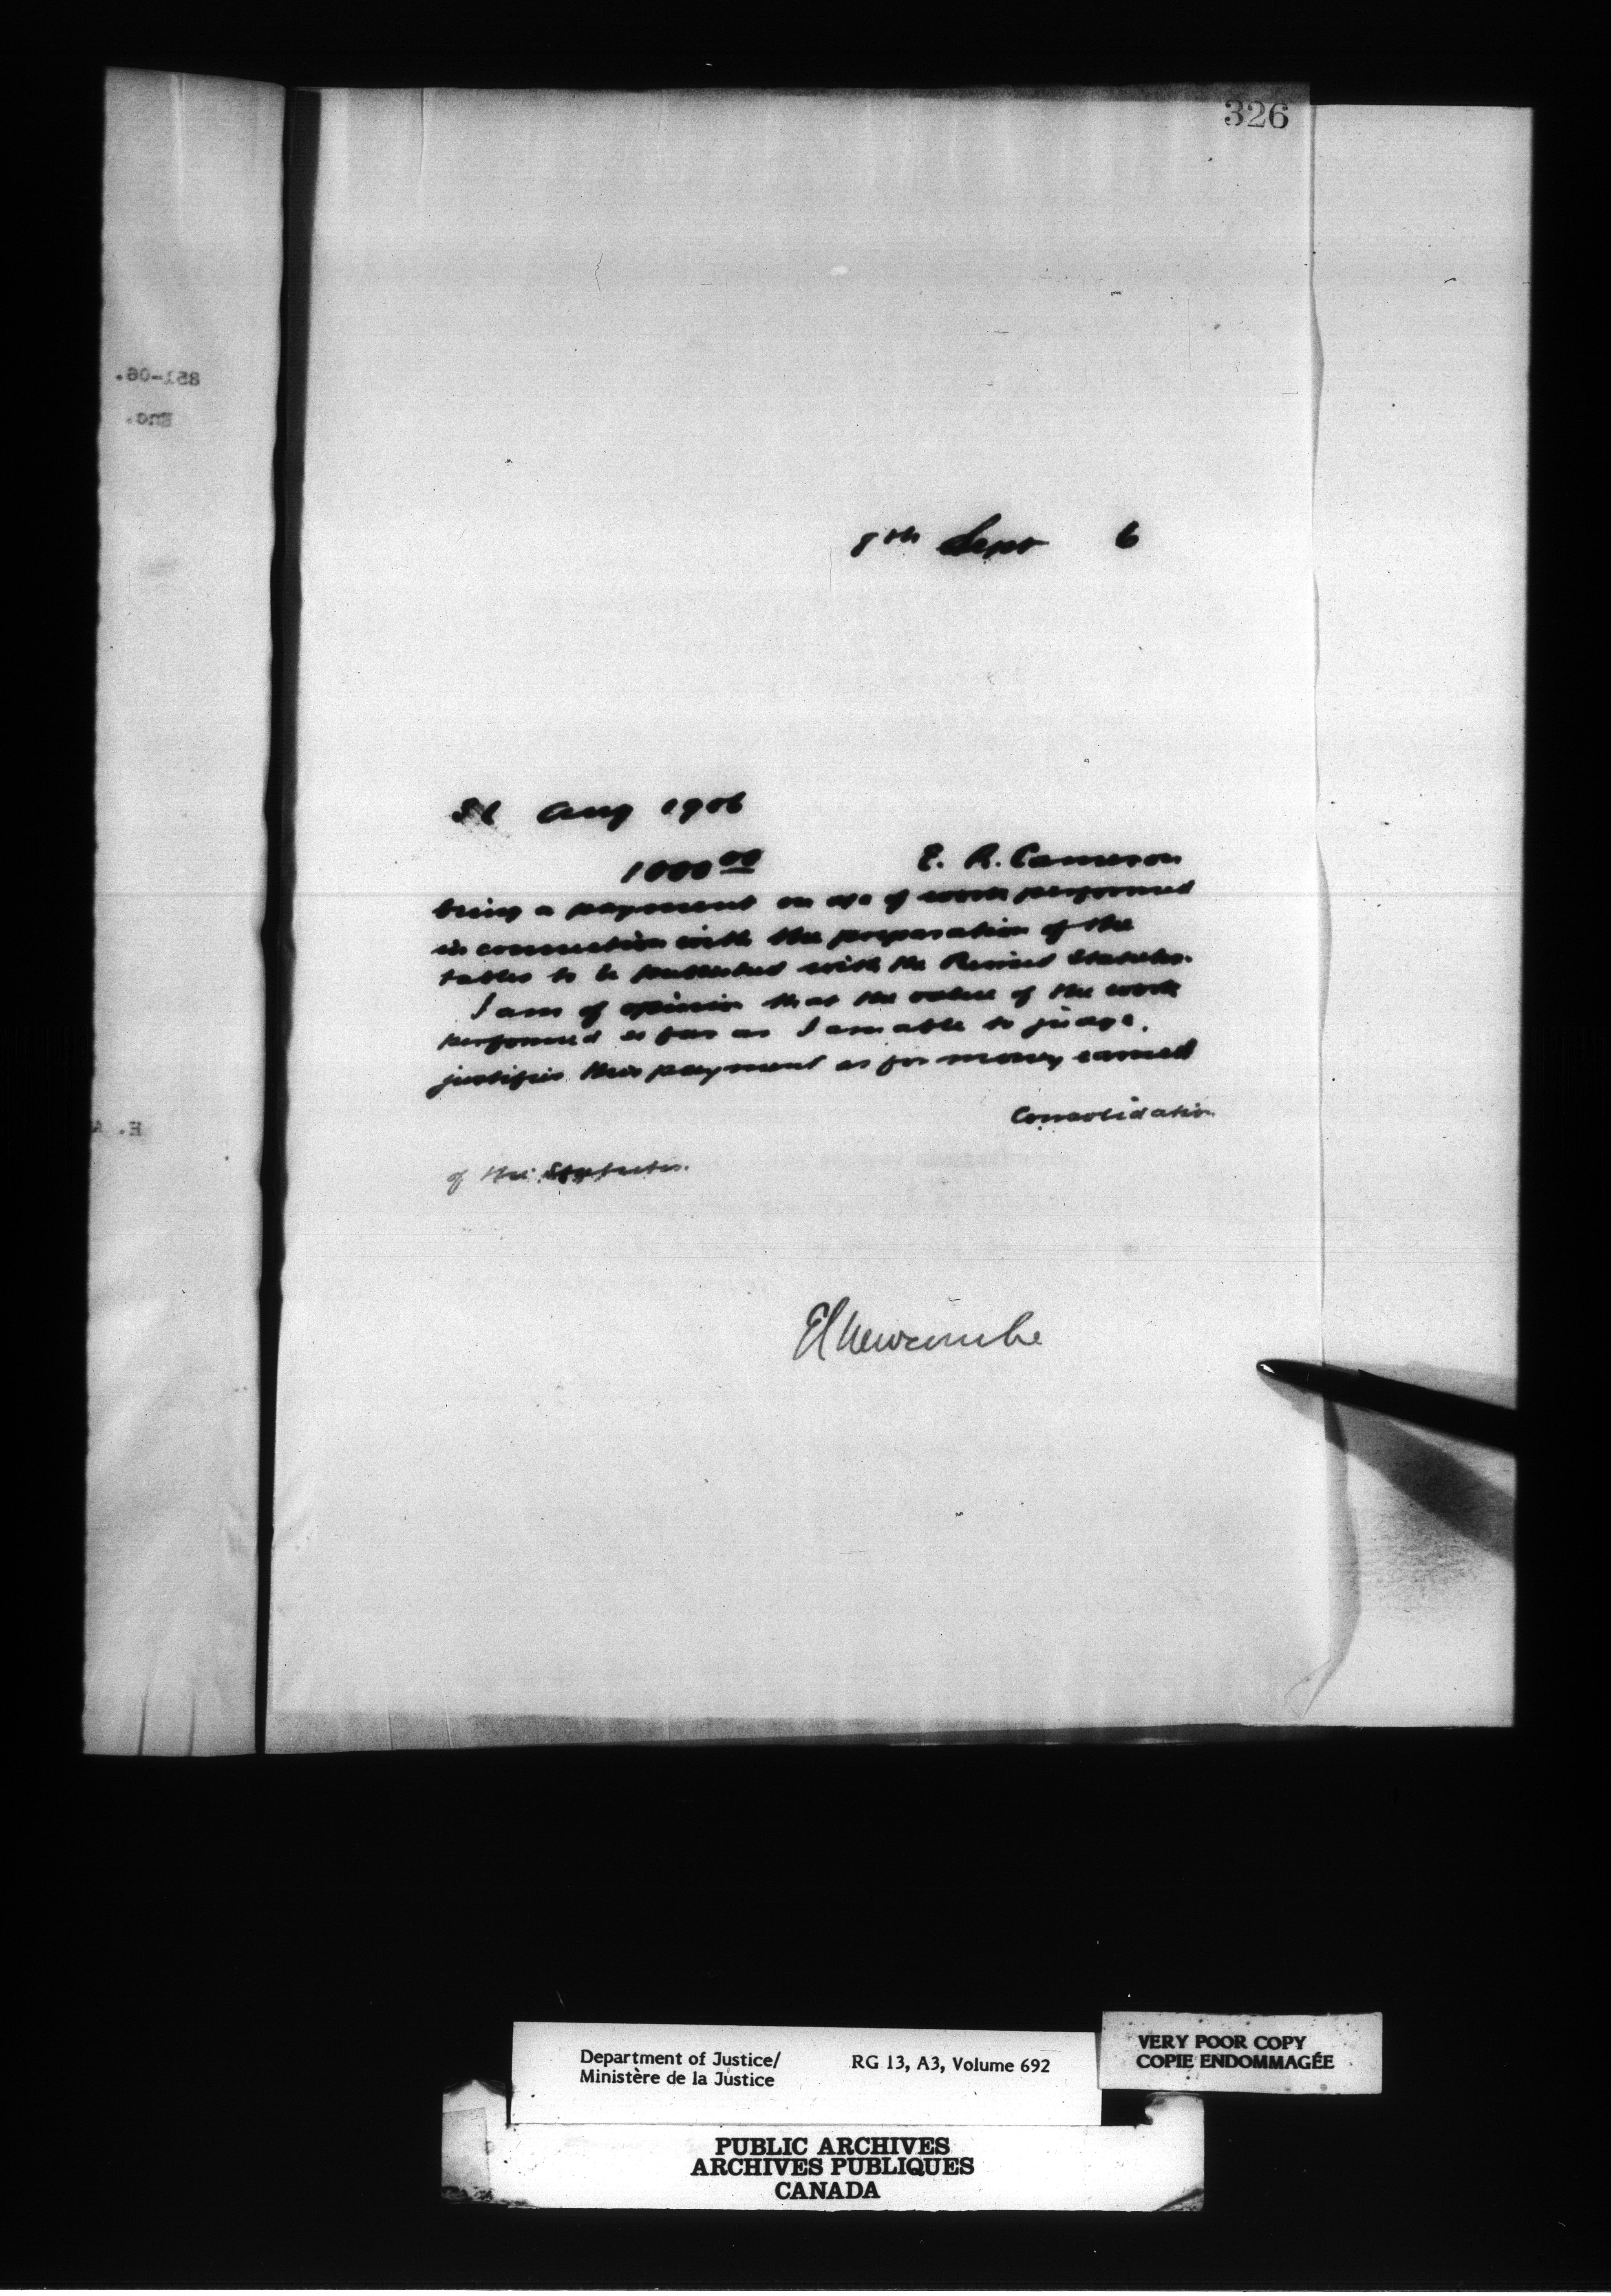 326
8th Sept 6
31 Aug 1906
1000 00 E. R. Cameron
being a payment on a/c of work performed
in connection with the preparation of the
tables to be published with the Revised Statutes.
I am of opinion that the value of the work
performed as far as I am able to judge,
justifies this payment as for money earned
Consolidation
of the Statutes.
EL Newcombe
851-06.
Enc.
Department of Justice/ RG 13, A3, Volume 692
Ministère de la Justice
VERY POOR COPY
COPIE ENDOMMAGÉE
PUBLIC ARCHIVES
ARCHIVES PUBLIQUES
CANADA